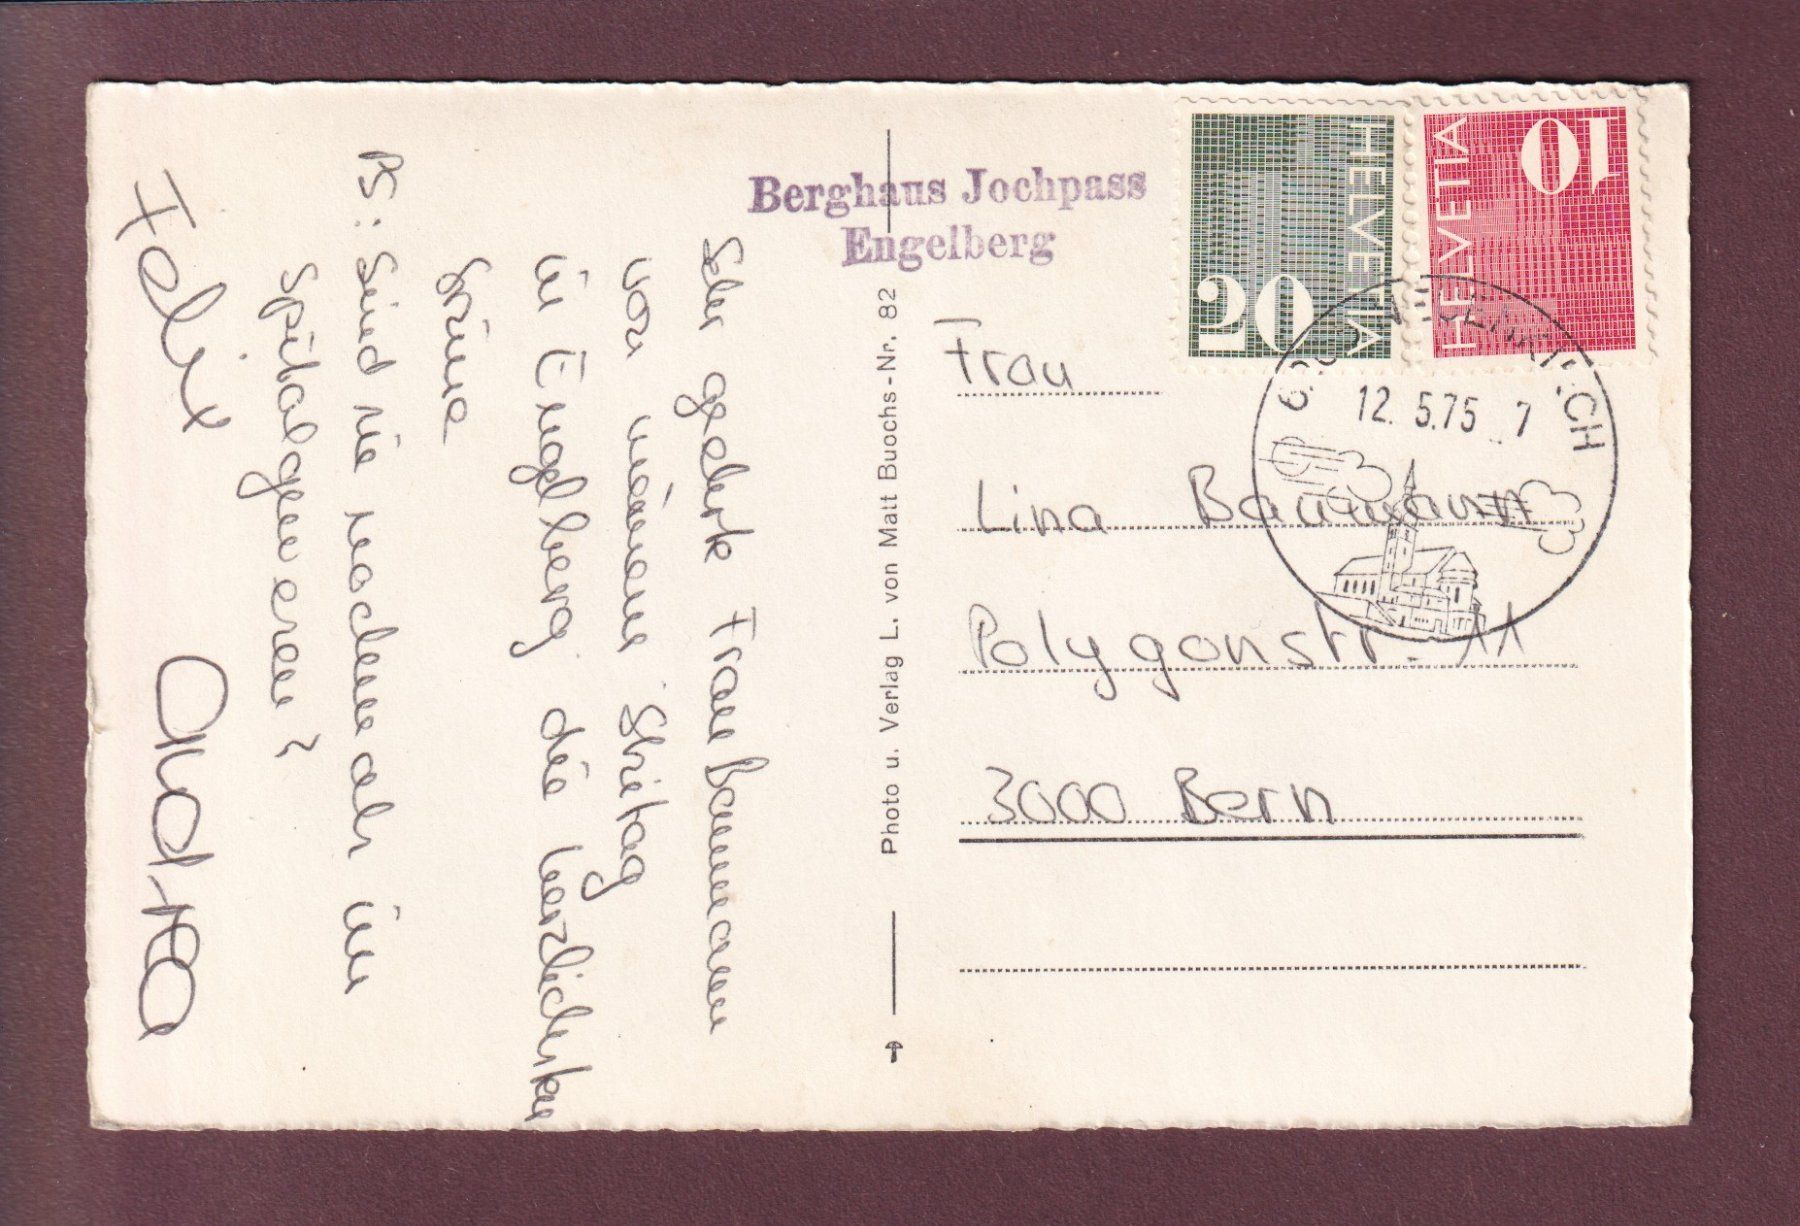 Berghaus Jochpass
Engelberg
HELVETIA
20
HELVETIA
10
12. 5.75 7
Sehr geehrte Frau Baumann
von meinem Skitag
in Engelberg die herzlichsten
Grüsse
PS: Sind sie nochmals im
Spital gewesen?
Felix
Photo u. Verlag L. von Matt Buochs-Nr. 82
Frau
Lina Baumann
Polygonstr. 11
3000 Bern